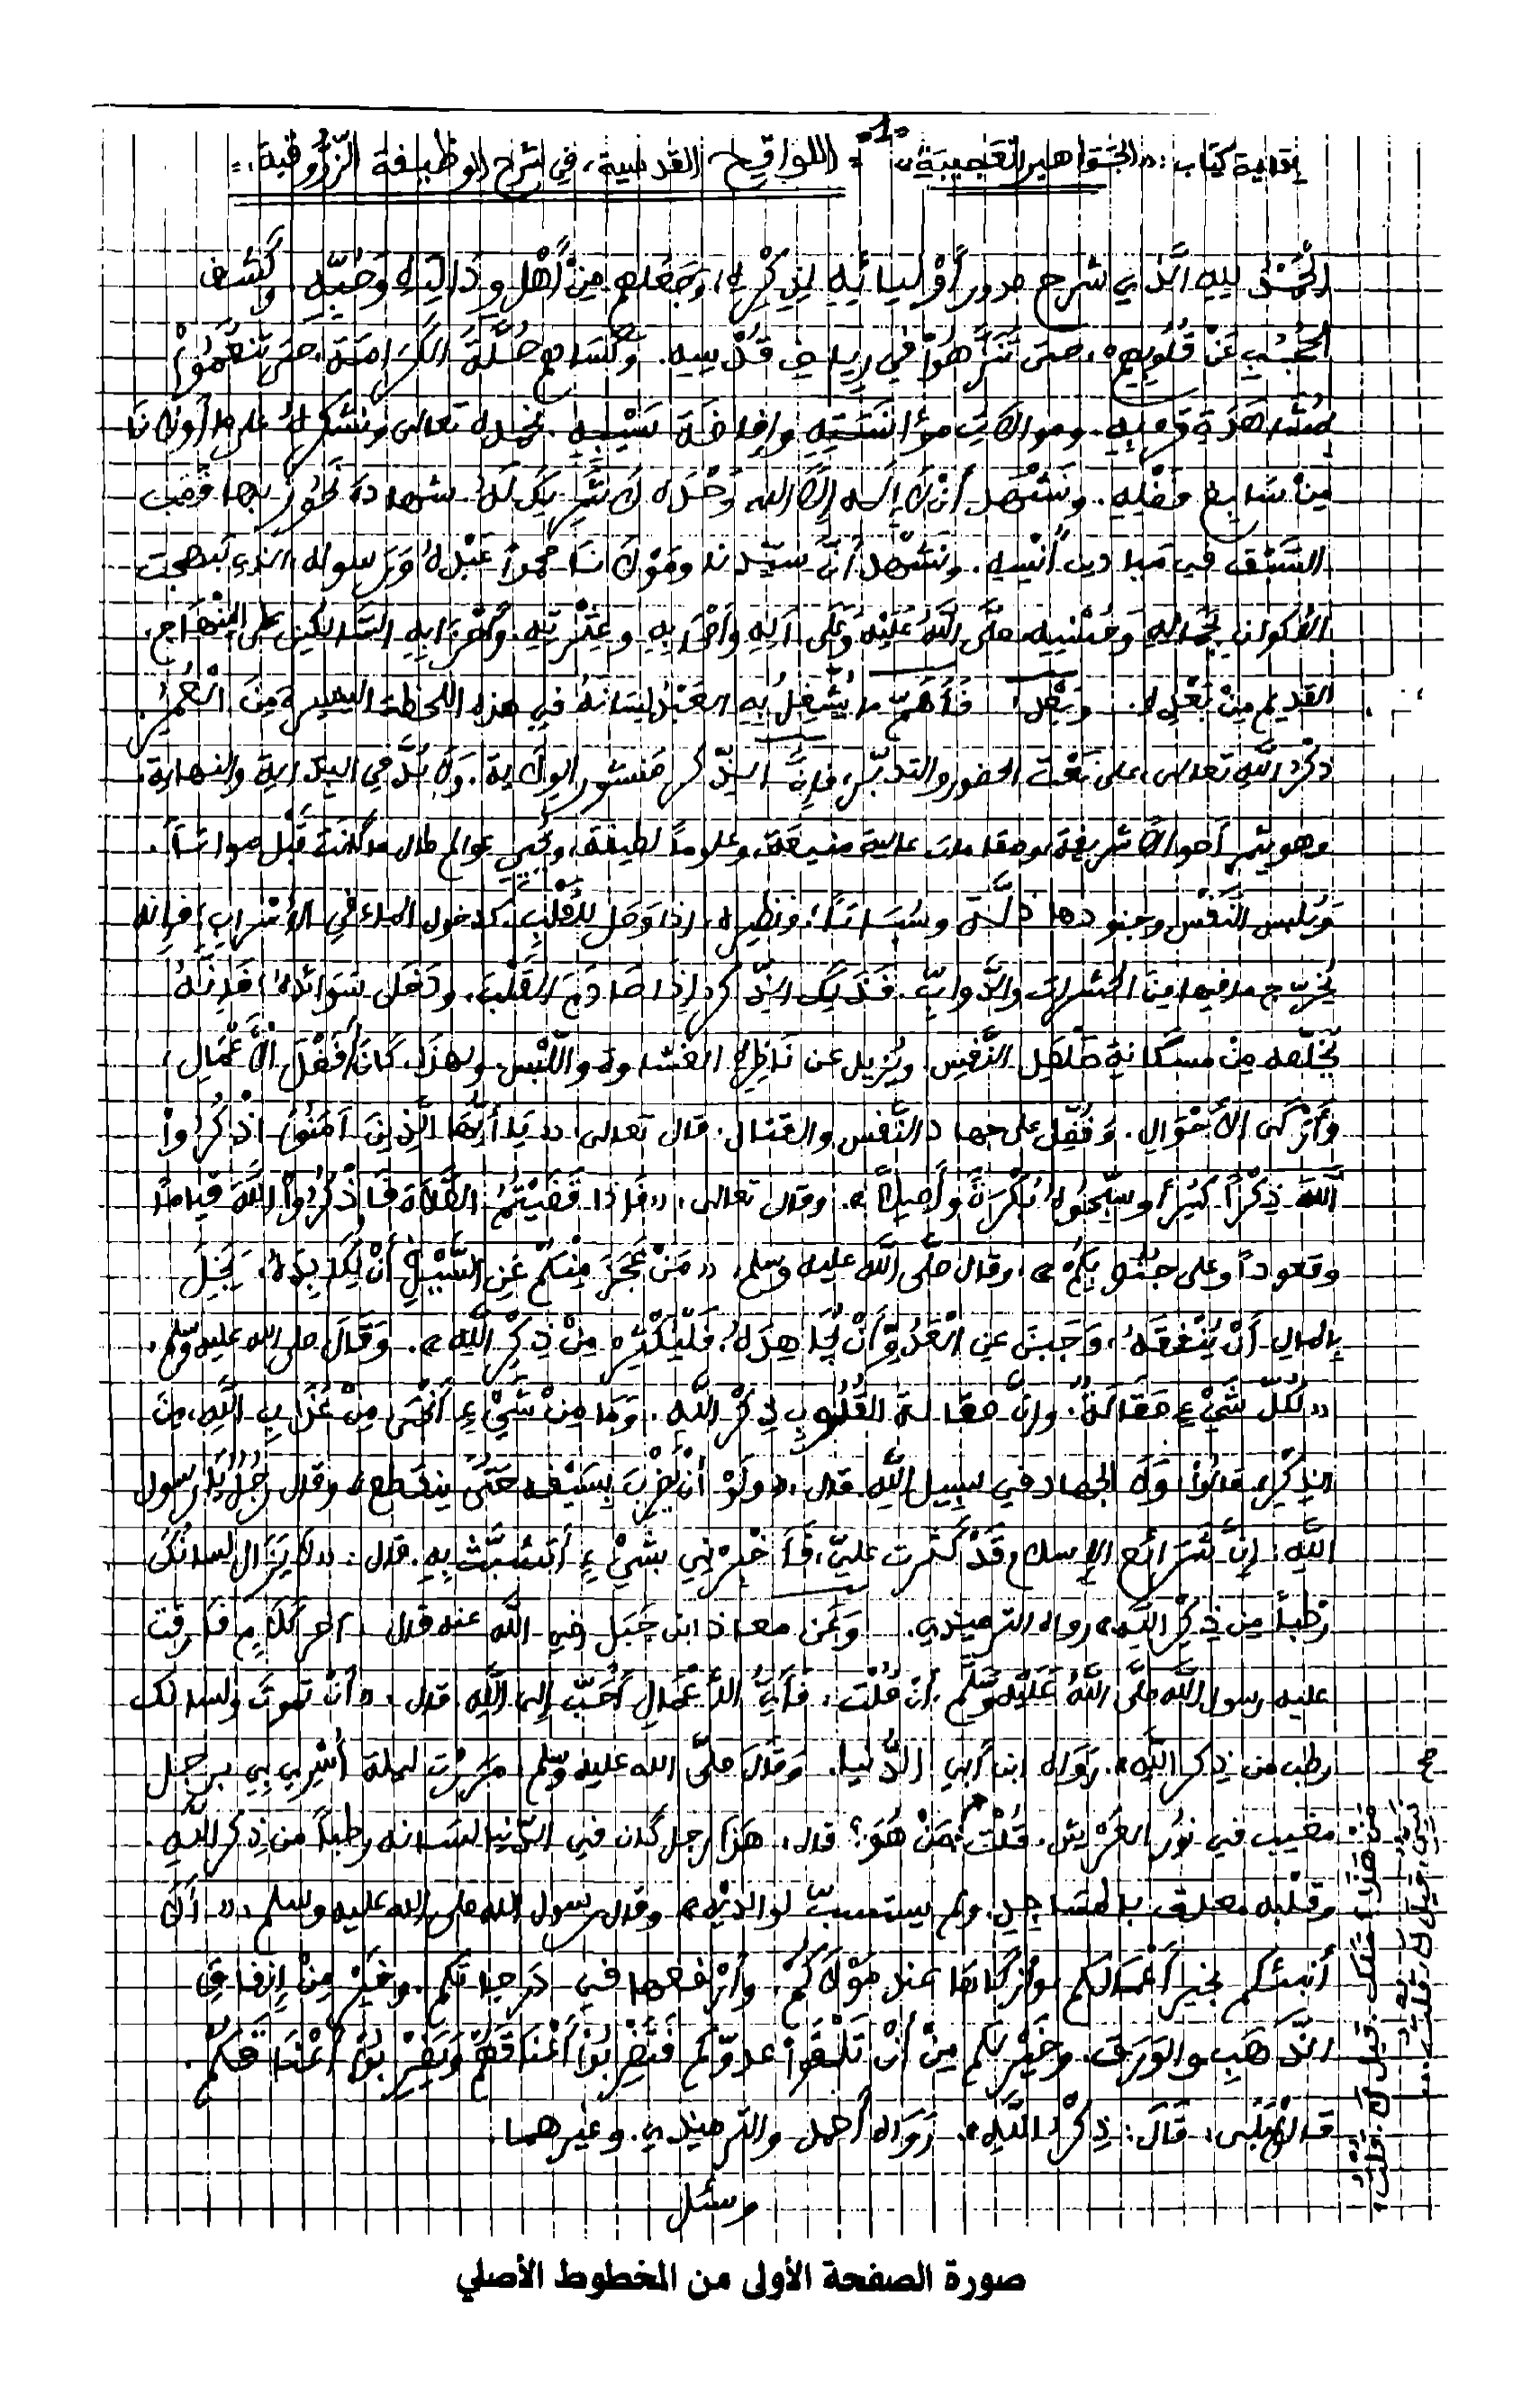 -1-
بقية كتاب: «الجَوَاهِير العَجِيبَة» = اللواقِح القدسية، في شرح الوظيفة الزَّرُّوقية. =
الحمْدُ لِلهِ الَّذي شرح صدور أَوْليائِهِ لِذِكْرِهِ، وَجَعَلهم مِنْ أَهْل وِدَادِهِ وَحُبِّهِ. وَكَشف
الحُجُبِ عَنْ قُلُوبِهِمْ، حتى تَنَزَّهُوا في رِياضِ قُدْسِه. وَكَسَاهم حُلَّةَ الكَرَامَة، حَتى تنعَّمُواْ
بمُشَاهَدَة قربِه. وموالاتِ مؤَانَسَتِهِ وإفاضَة سَيْبِهِ. نحمده تعالى ونشكرهُ على ما أولانَا
مِنْ سَابِغ فضلِهِ. ونَشْهد أنْ لاَ إِله إلاَّ الله وَحْدَه لاَ شَرِيكَ لَهُ شهادةً نحُوز بها قصَب
السَّبْق في مَيادِين أُنْسِهِ. ونَشْهدُ أنَّ سيّدنا ومَوْلاَنَا محمداً عَبْدُهُ وَرَسوله الذي تبهجت
الأكوان بجماله وَحُسْنِهِ صلَّى اللَّهُ عَلَيْه وَعَلَى آلِهِ وأَصْحَابِهِ وعِتْرَتِهِ وَأحْزَابِهِ السَّالكين على المِنْهَاجِ
القديم مِنْ بَعْدِه. وبَعْد: فَأَهَمّ ما يُشْغِلُ بِهِ العَبْدُ لِسَانَهُ في هذه اللحظة اليسيرة مِنَ العُمرِ:
ذكْرُ اللَّهِ تعالى على نَعْتِ الحضور والتدبّر، فَإِنَّ الذِّكْر مَنشور الولاية. وَلاَ بُدَّ في البِدَاية والنهاية.
وهو يثمر أحوالاً شريفة، ومقامات عالية منيعَة، وعلوماً لطيفة، ويُحيي عوالم طال ما كَانَتْ قَبْل مواتاً.
وَيُلبس النَّفْس وجنودها ذلَّة وسُبَاتاً. ونظيره، إذا وَصَل لِلْقلْبِ، كدخول الماء في الأسْرابِ، فإنه
يُخرج ما فيها مِنَ الحشرات والدَّوابّ. فَكَذلك الذّكْر، إذا صَادَمَ القَلْبَ، ودَخل سُوَيْدَاءَهُ، فَإِنَّهُ
يُخْرجه مِنْ مسكانة صَلْصَل النَّفْس. ويُزيل عن نَاظِرِهِ الغشاوة واللَّبْس. ولهذا، كَانَ أَفْضَلَ الأعْمَالِ،
وَأَزْكَى الأَحْوَالِ. وَفُضِّل على جهاد النَّفس والقتال. قال تعالى: «يَا أَيُّهَا الَّذِينَ آمَنُواْ اذْكُرُواْ
اللَّهَ ذِكْراً كَثِيراً وسَبِّحُوهُ بُكْرَةً وَأَصِيلاً». وقال تعالى: «فإذا قَضَيْتُمُ الصَّلاَةَ فَاذْكُرُواْ اللَّهَ قياماً
وقعوداً وعلى جنُوبِكُمْ»، وقال صلَّى اللَّه عليه وسلم: «مَنْ عَجَزَ مِنْكُمْ عَنِ اللَّيْلِ أَنْ يُكَابِدَهُ، بَخِلَ
بِالمالِ أَنْ يُنْفِقَهُ، وَجَبنَ عَنِ العَدُوِّ أَنْ يُجَاهِدَهُ، فَلْيُكْثِرْ مِنْ ذِكْرِ اللَّهِ». وَقَالَ صلى الله عليه وسلم:
«لِكُلِّ شَيْءٍ صَقَالَةٌ. وإنَّ صقالة القُلُوبِ ذِكْرُ اللَّه. وَمَا مِنْ شَيْءٍ أَنْجَى مِنْ عَذَابِ اللَّهِ، مِنَ
الذِّكْرِ، قالُواْ وَلاَ الجهاد في سبيل اللَّهِ قال: «ولَوْ أنْ يضْرِبَ بِسَيْفه حَتَّى ينقطع» وقال رَجُل يَا رسول
اللَّهِ: إنَّ شَرَائع الإسلام قَدْ كثُرت عليّ، فَأَخْبِرْنِي بشَيْءٍ أَتشَبَّث بِه. قال: «لاَ يَزَال لسانُكَ
رَطْباً مِن ذِكْرِ اللَّه» رواه الترمذي. وَعَنْ معاذ ابن جَبَل رضي اللَّه عنه قال: آخر كلاَمٍ فَارقْت
عليه رسول اللَّه صَلَّى اللَّهُ عَلَيْه وَسَلَّم أن قُلْت: فَأَيُّ الأعْمَالِ أَحَبّ إلى اللَّه، قال: «أنْ تموتَ ولسانك
رطب من ذِكر اللَّهِ». رَوَاه ابن أبي الدُّنيا. وَقَالَ صلَّى الله عليه وسلم: مَرَرْت ليلة أُسْرِيَ بي برجل
مغيب في نُور العرْش. قُلْت: مَنْ هُوَ؟ قال: هَذَا رجل كان في الدّنيا لسانه رطباً من ذِكر اللَّهِ.
وقلْبه معلق بالمسَاجِدِ. ولم يستسبّ لوالديْه» وقال رسول الله صلى الله عليه وسلم: «أَلاَ
أنبئكم بخَيْر أَعْمَالكم وأزْكَاهَا عند مَوْلاَكُمْ. وأَرْفعها في دَرجاتكم. وخَيْر مِنْ إِنفاقِ
الذَّهَبِ والوَرِق. وخَيْر لَكم مِنْ أنْ تَلْقَوا عدوّكم فَتَضْرِبُواْ أَعْنَاقَهُمْ وَيَضْرِبُوا أَعْنَاقَكُمْ.
قالُواْ بَلَى، قَالَ: ذِكْرُ اللَّه». رَوَاه أحمد والترمذي. وغيرهما.
وسئل
مَنْ هَذَا، مَلَك. قيل: لاَ. قُلْتُ:
نَبِيّ، قيل: لاَ، قلت..
صح
صورة الصفحة الأولى من المخطوط الأصلي